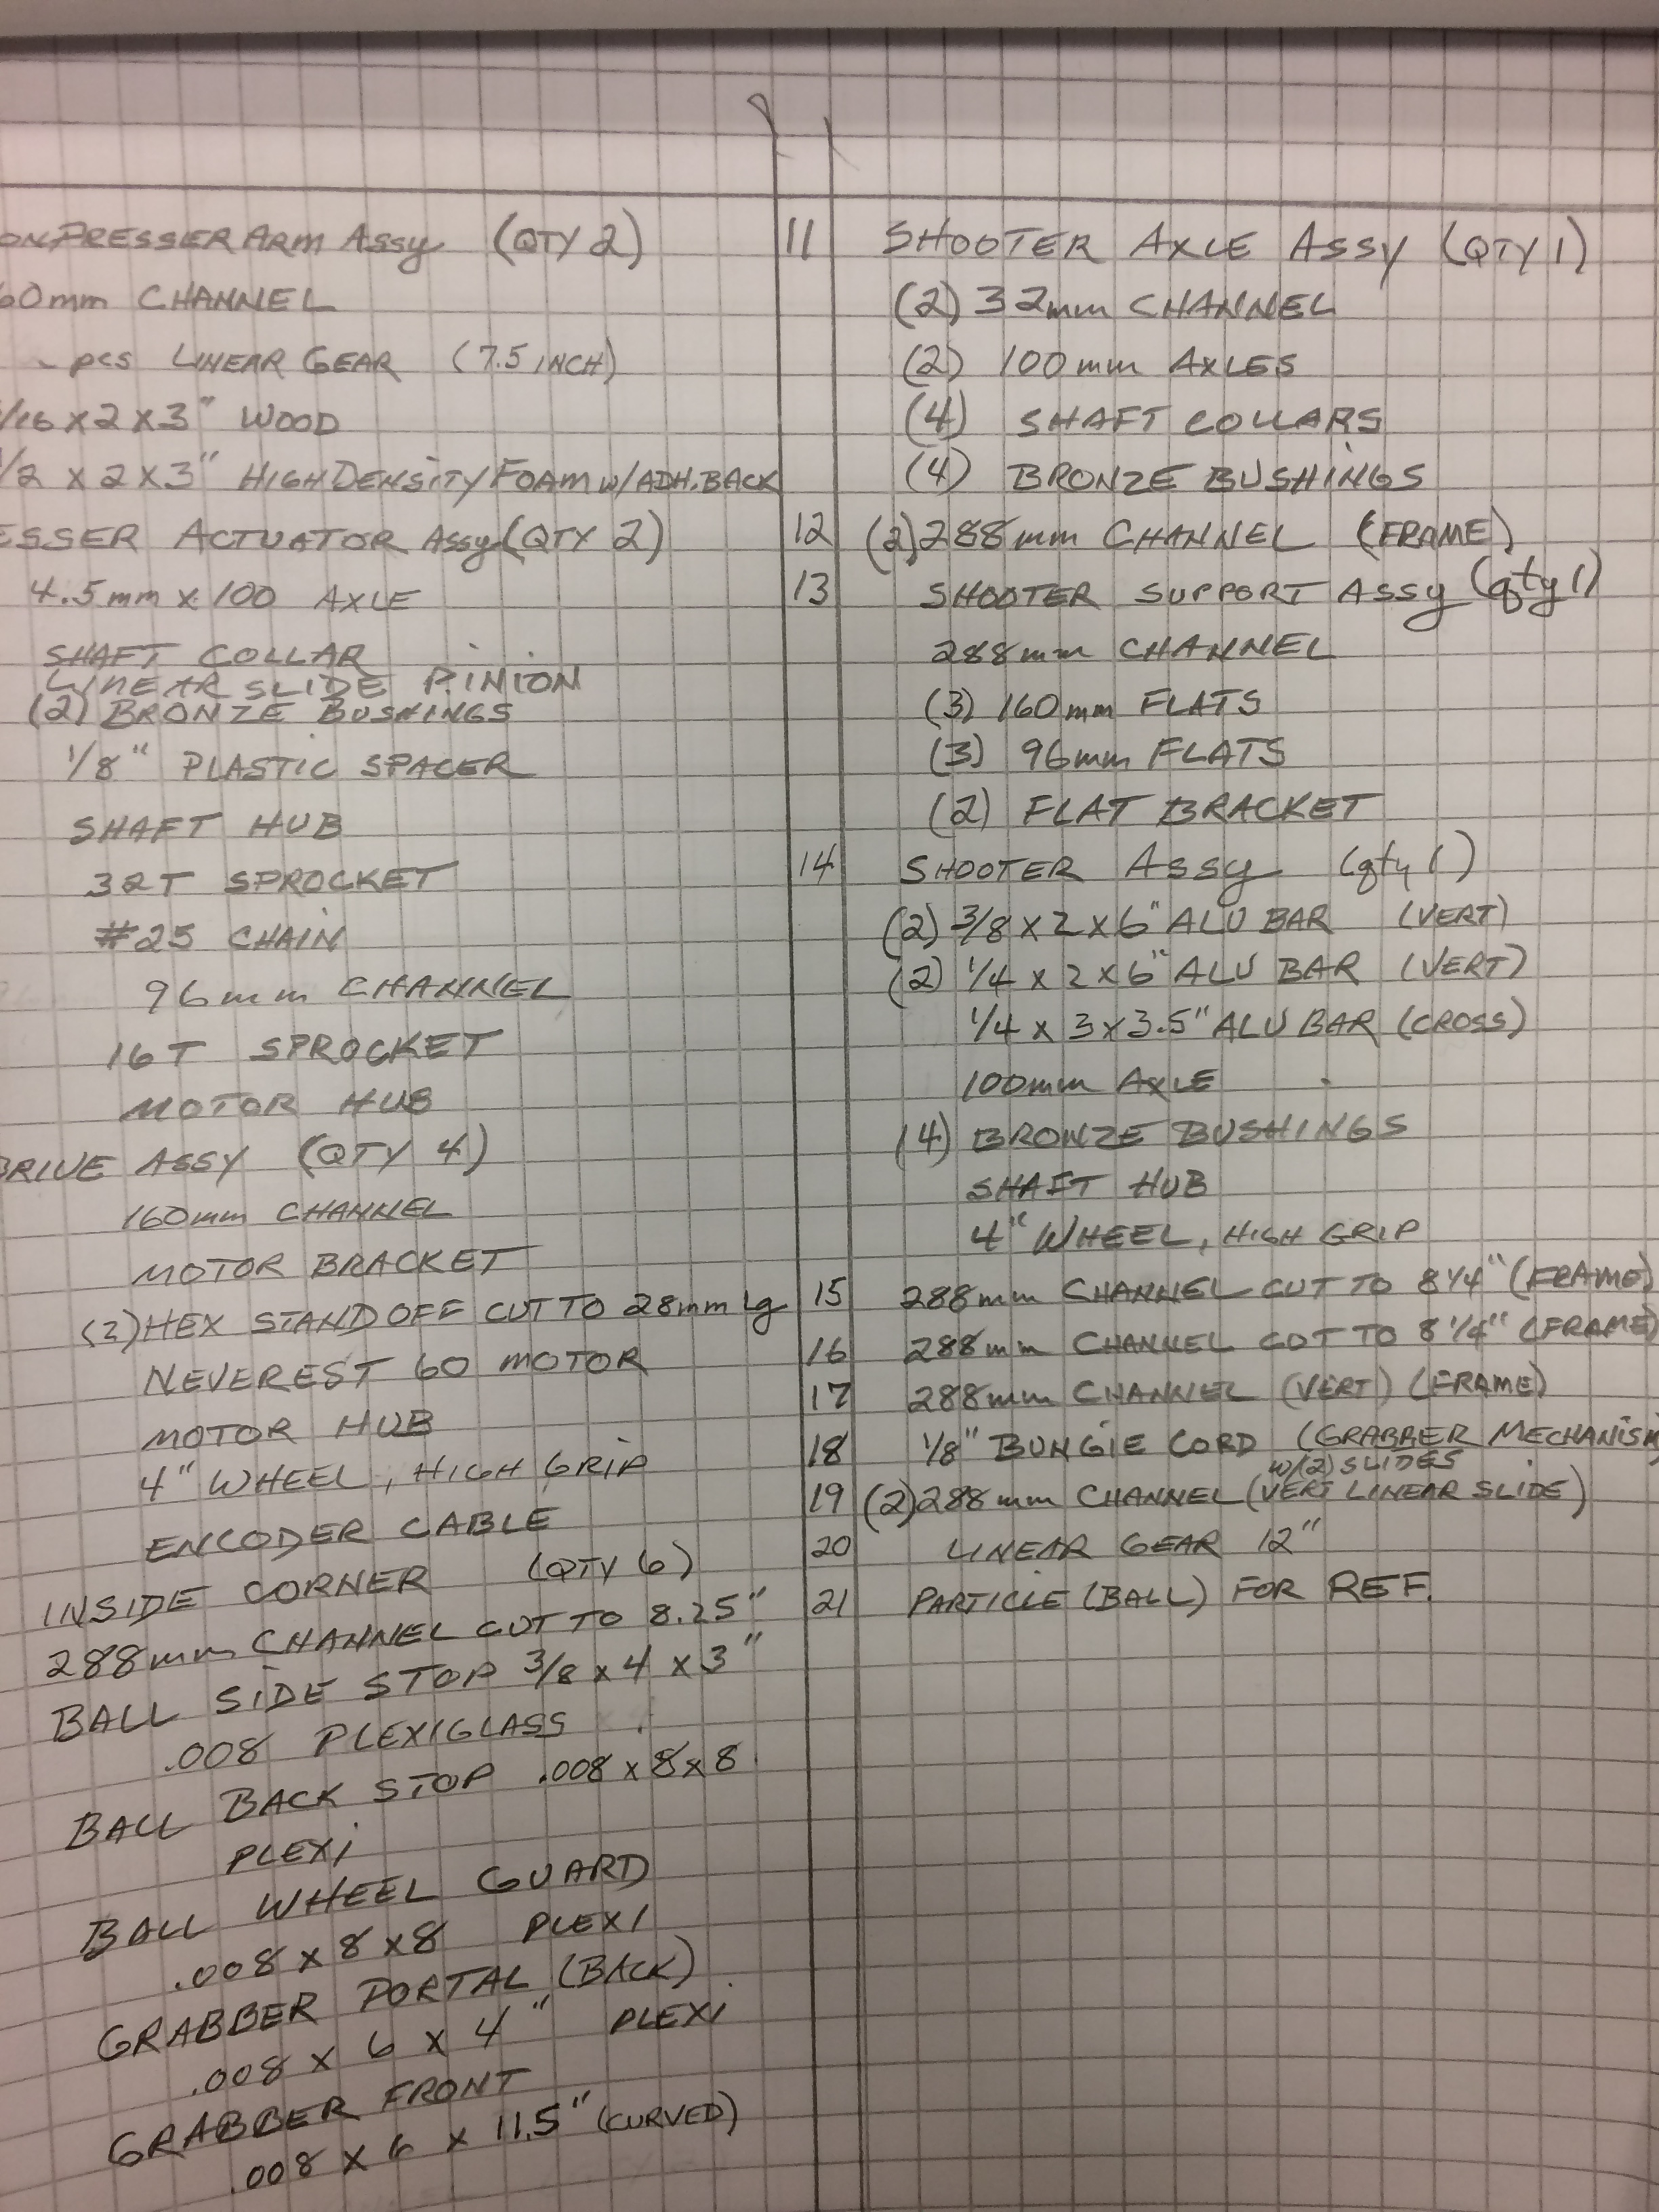 ONPRESSER ARM ASSY (QTY 2)
60mm CHANNEL
pcs LINEAR GEAR (7.5 INCH)
/16 x 2 x 3" WOOD
1/2 x 2 x 3" HIGH DENSITY FOAM W/ADH. BACK
ESSER ACTUATOR ASSY (QTY 2)
4.5mm x 100 AXLE
SHAFT COLLAR
LINEAR SLIDE PINION
(2) BRONZE BUSHINGS
1/8" PLASTIC SPACER
SHAFT HUB
32T SPROCKET
#25 CHAIN
96mm CHANNEL
16T SPROCKET
MOTOR HUB
DRIVE ASSY (QTY 4)
160mm CHANNEL
MOTOR BRACKET
(2) HEX STANDOFF CUT TO 28mm Lg
NEVEREST 60 MOTOR
MOTOR HUB
4" WHEEL, HIGH GRIP
ENCODER CABLE
INSIDE CORNER (QTY 6)
288mm CHANNEL CUT TO 8.25"
BALL SIDE STOP 3/8 x 4 x 3"
.008 PLEXIGLASS
BALL BACK STOP .008 x 8 x 8
PLEXI
BALL WHEEL GUARD
.008 x 8 x 8 PLEXI
GRABBER PORTAL (BACK)
.008 x 6 x 4" PLEXI
GRABBER FRONT
.008 x 6 x 11.5" (CURVED)
11 SHOOTER AXLE ASSY (QTY 1)
(2) 32mm CHANNEL
(2) 100mm AXLES
(4) SHAFT COLLARS
(4) BRONZE BUSHINGS
12 (2) 288mm CHANNEL (FRAME)
13 SHOOTER SUPPORT ASSY (qty 1)
288mm CHANNEL
(3) 160mm FLATS
(3) 96mm FLATS
(2) FLAT BRACKET
14 SHOOTER ASSY (qty 1)
(2) 3/8 x 2 x 6" ALU BAR (VERT)
(2) 1/4 x 2 x 6" ALU BAR (VERT)
1/4 x 3 x 3.5" ALU BAR (CROSS)
100mm AXLE
(4) BRONZE BUSHINGS
SHAFT HUB
4" WHEEL, HIGH GRIP
15 288mm CHANNEL CUT TO 8 1/4" (FRAME)
16 288mm CHANNEL CUT TO 8 1/4" (FRAME)
17 288mm CHANNEL (VERT) (FRAME)
18 1/8" BUNGIE CORD (GRABBER MECHANISM
W/(2) SLIDES
19 (2) 288mm CHANNEL (VERT LINEAR SLIDE)
20 LINEAR GEAR 12"
21 PARTICLE (BALL) FOR REF.